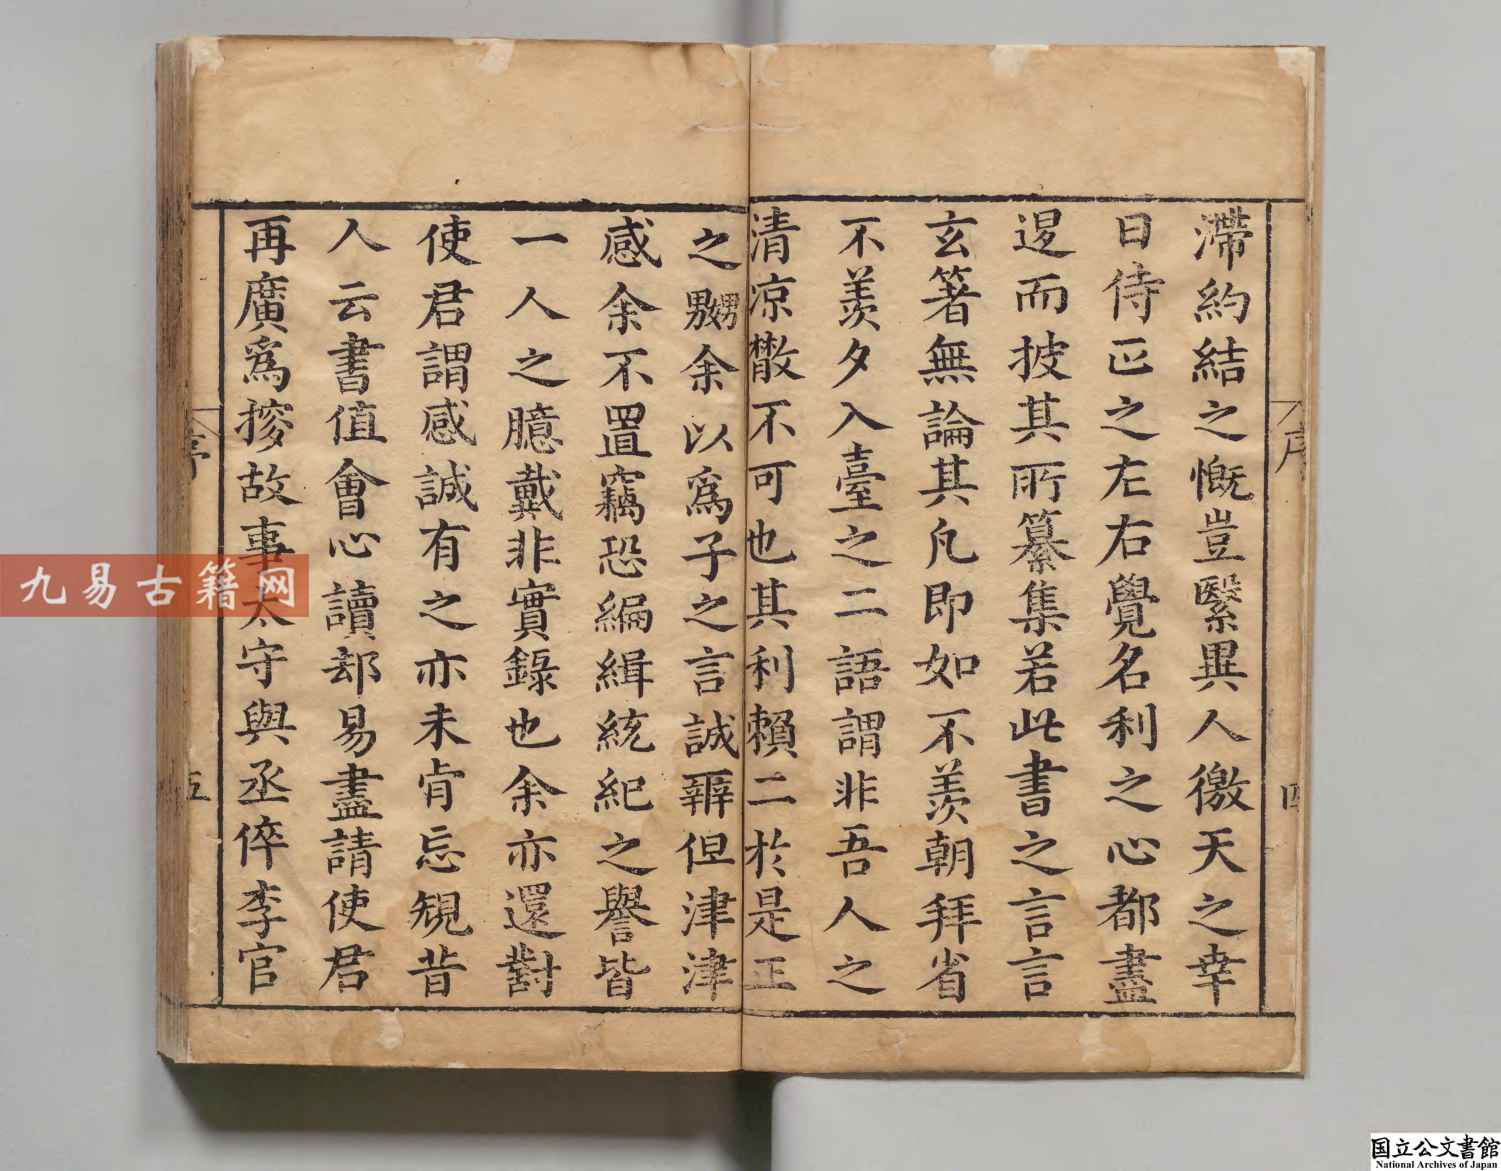 滯約結之慨豈繄異人徼天之幸
日侍正之左右覺名利之心都盡
逡而披其所纂集若此書之言言
玄箸無論其凡即如不羨朝拜省
不羨夕入臺之二語謂非吾人之
清凉散不可也其利賴二於是正
之嬲余以爲子之言誠辯但津津
感余不置竊恐編緝統紀之譽皆
一人之臆戴非實錄也余亦還對
使君謂感誠有之亦未肯忘覜昔
人云書值會心讀却易盡請使君
再廣爲摉故事太守與丞倅李官
序
四
五
九易古籍网
国立公文書館
National Archives of Japan